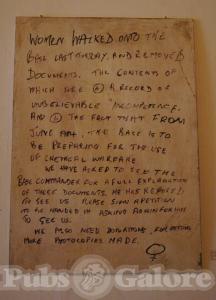 WOMEN WALKED ONTO THE
BASE LAST THURSDAY, AND REMOVED
DOCUMENTS. THE CONTENTS OF
WHICH WERE (a) A RECORD OF
UNBELIEVABLE INCOMPETENCE.
AND (b) THE FACT THAT FROM
JUNE THE BASE IS TO
BE PREPARING FOR THE USE
OF CHEMICAL WARFARE
WE HAVE ASKED TO SEE THE
BASE COMMANDER FOR A FULL EXPLANATION
OF THESE DOCUMENTS. HE HAS REFUSED
TO SEE US. PLEASE SIGN A PETITION
TO BE HANDED IN ASKING AGAIN FOR HIM
TO SEE US.
WE ALSO NEED DONATIONS, FOR GETTING
MORE PHOTOCOPIES MADE.
Pubs Galore